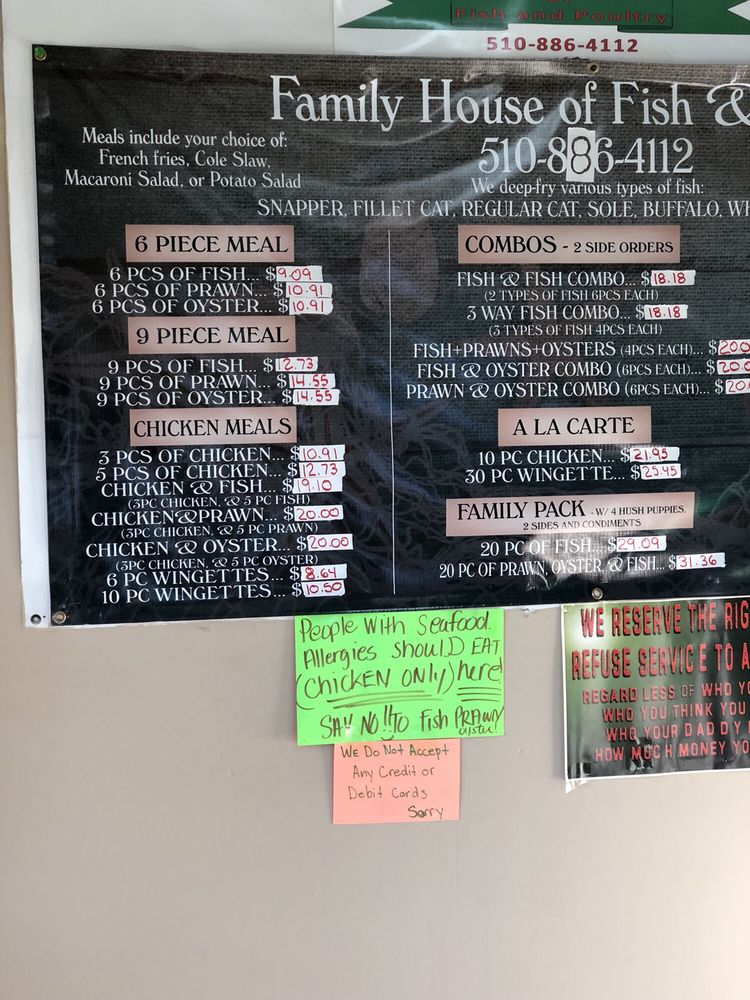 Fish and Poultry
510-886-4112
Family House of Fish &
510-886-4112
Meals include your choice of:
French fries, Cole Slaw,
Macaroni Salad, or Potato Salad
We deep-fry various types of fish:
SNAPPER, FILLET CAT, REGULAR CAT, SOLE, BUFFALO,
6 PIECE MEAL
6 PCS OF FISH... $9.09
6 PCS OF PRAWN... $10.91
6 PCS OF OYSTER... $10.91
9 PIECE MEAL
9 PCS OF FISH... $12.73
9 PCS OF PRAWN... $14.55
9 PCS OF OYSTER... $14.55
CHICKEN MEALS
3 PCS OF CHICKEN... $10.91
5 PCS OF CHICKEN... $12.73
CHICKEN & FISH... $19.10
(3PC CHICKEN, & 5 PC FISH)
CHICKEN&PRAWN... $20.00
(3PC CHICKEN, & 5 PC PRAWN)
CHICKEN & OYSTER... $20.00
(3PC CHICKEN, & 5 PC OYSTER)
6 PC WINGETTES... $8.64
10 PC WINGETTES... $10.50
COMBOS - 2 SIDE ORDERS
FISH & FISH COMBO... $18.18
(2 TYPES OF FISH 6PCS EACH)
3 WAY FISH COMBO... $18.18
(3 TYPES OF FISH 4PCS EACH)
FISH+PRAWNS+OYSTERS (4PCS EACH)... $20.0
FISH & OYSTER COMBO (6PCS EACH)... $20.0
PRAWN & OYSTER COMBO (6PCS EACH)... $20.
A LA CARTE
10 PC CHICKEN... $21.95
30 PC WINGETTE... $25.45
FAMILY PACK - W/ 4 HUSH PUPPIES,
2 SIDES AND CONDIMENTS
20 PC OF FISH... $29.09
20 PC OF PRAWN, OYSTER, & FISH... $31.36
People With Seafood
Allergies Should EAT
(CHICKEN ONLY) here!
SAY NO!! TO Fish PRAWN
oyster!
We Do Not Accept
Any Credit or
Debit Cards
Sorry
WE RESERVE THE RIG
REFUSE SERVICE TO A
REGARDLESS OF WHO YO
WHO YOU THINK YOU
WHO YOUR DADDY I
HOW MUCH MONEY YO